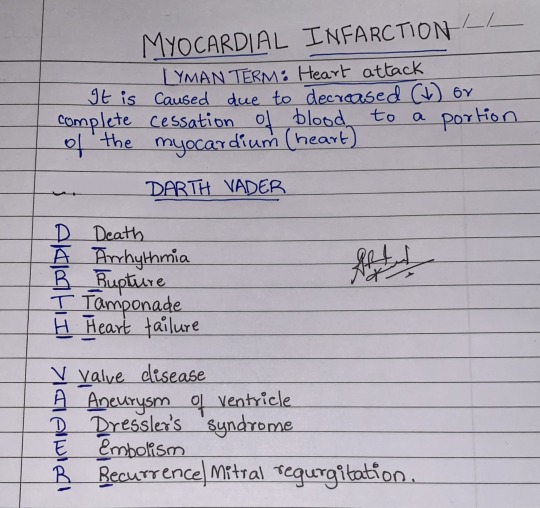 MYOCARDIAL INFARCTION
LYMAN TERM: Heart attack
It is caused due to decreased (↓) or
complete cessation of blood to a portion
of the myocardium (heart)
DARTH VADER
D Death
A Arrhythmia
R Rupture
T Tamponade
H Heart failure
V Valve disease
A Aneurysm of ventricle
D Dressler's syndrome
E Embolism
R Recurrence/Mitral regurgitation.